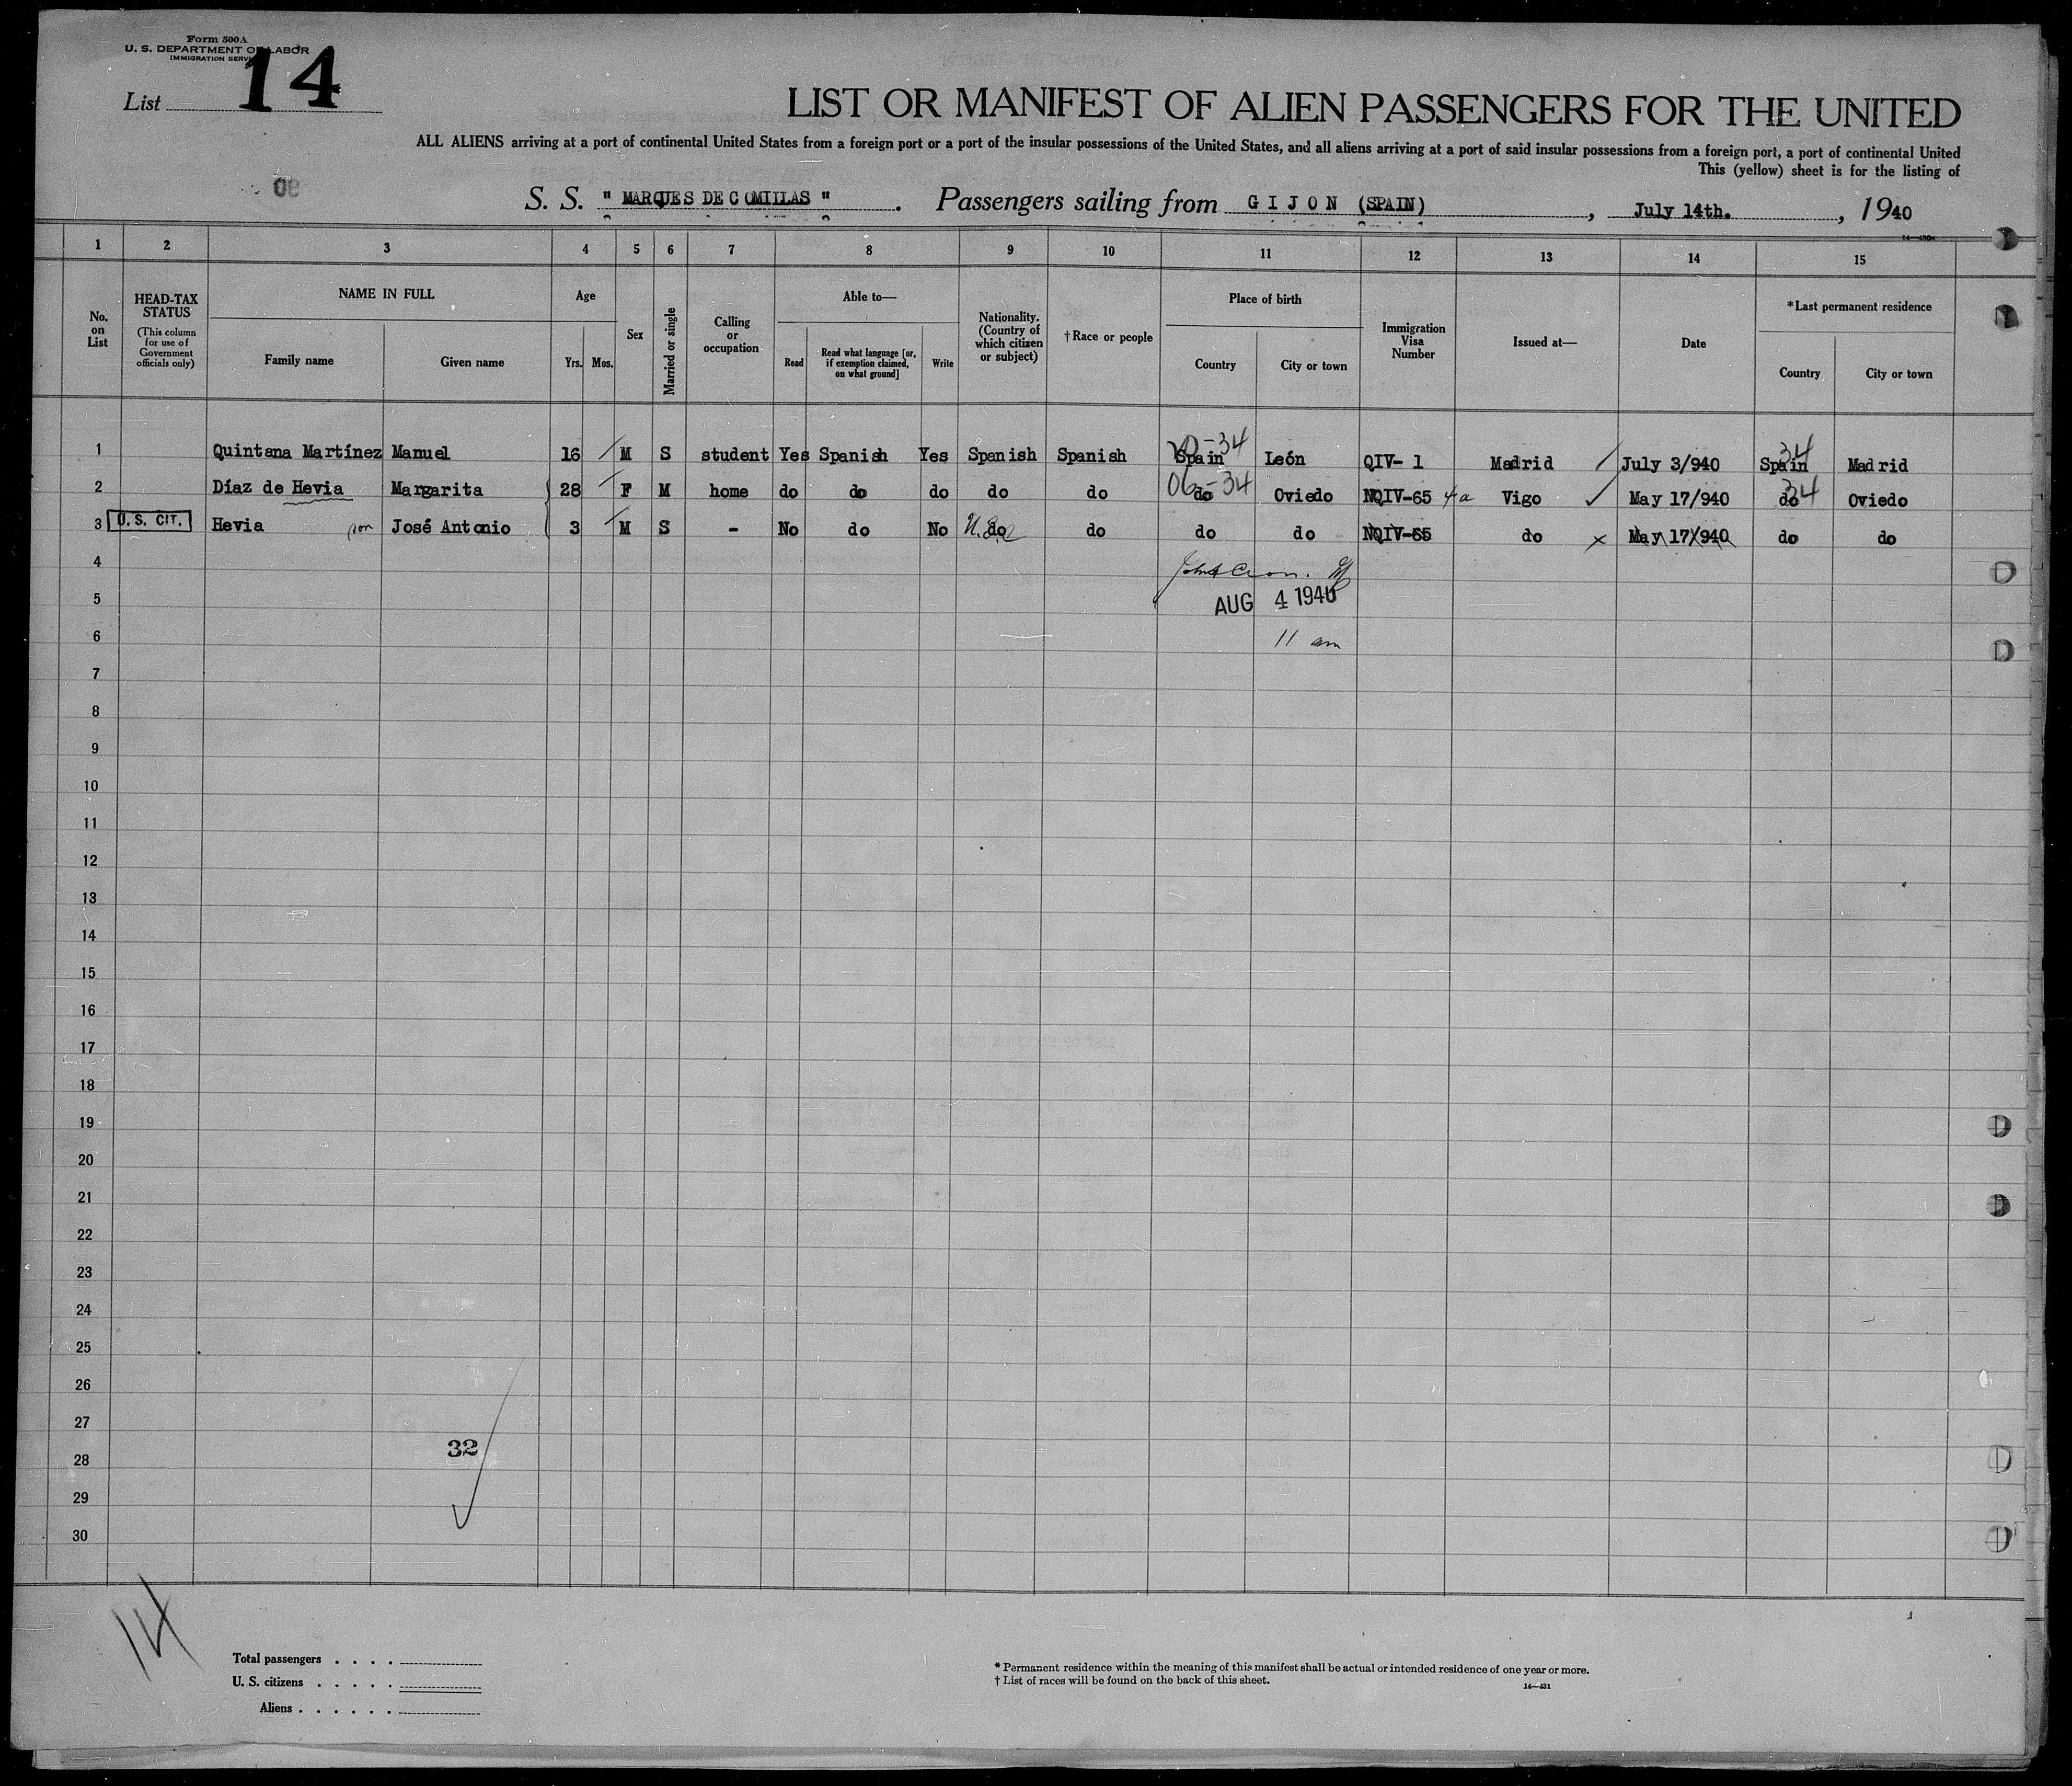 Form 500A
U. S. DEPARTMENT OF LABOR
IMMIGRATION SERVICE
List 14
LIST OR MANIFEST OF ALIEN PASSENGERS FOR THE UNITED
ALL ALIENS arriving at a port of continental United States from a foreign port or a port of the insular possessions of the United States, and all aliens arriving at a port of said insular possessions from a foreign port, a port of continental United
This (yellow) sheet is for the listing of
S. S. " MARQUES DE COMILLAS " . Passengers sailing from G I J O N (SPAIN) , July 14th. , 1940
1 2 3 4 5 6 7 8 9 10 11 12 13 14 15
No. on List
HEAD-TAX STATUS
(This column for use of Government officials only)
NAME IN FULL
Family name
Given name
Age
Yrs. Mos.
Sex
Married or single
Calling or occupation
Able to—
Read
Read what language [or, if exemption claimed, on what ground]
Write
Nationality. (Country of which citizen or subject)
†Race or people
Place of birth
Country
City or town
Immigration Visa Number
Issued at—
Date
*Last permanent residence
Country
City or town
1 Quintana Martínez Manuel 16 M S student Yes Spanish Yes Spanish Spanish Spain León QIV- 1 Madrid July 3/940 Spain 34 Madrid
2 Díaz de Hevia Margarita 28 F M home do do do do do 06-34 do Oviedo NQIV-65 4a Vigo May 17/940 do 34 Oviedo
3 U. S. CIT. Hevia son José Antonio 3 M S - No do No do do do do NQIV-65 do May 17/940 do do
4
5 AUG 4 1940
6 11 am
7
8
9
10
11
12
13
14
15
16
17
18
19
20
21
22
23
24
25
26
27
32
28
29
30
14
Total passengers . . . .
U. S. citizens . . . . .
Aliens . . . . . .
* Permanent residence within the meaning of this manifest shall be actual or intended residence of one year or more.
† List of races will be found on the back of this sheet.
14—431